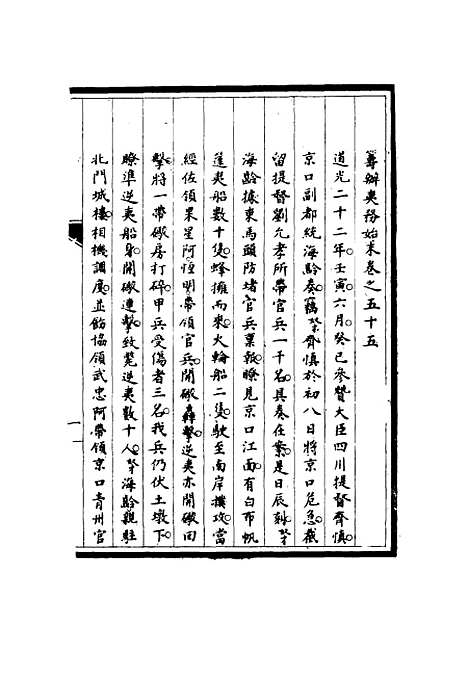 籌辦夷務始末卷之五十五
道光二十二年壬寅六月癸巳參贊大臣四川提督齊慎
京口副都統海齡奏竊奴才齊慎於初八日將京口危急截
留提督劉允孝所帶官兵一千名具奏在案是日辰刻奴才
海齡據東馬頭防堵官兵稟報瞭見京口江面有白布帆
篷夷船數十隻蜂擁而來火輪船二隻駛至南岸撲攻當
經佐領果星阿恆明帶領官兵開礮轟擊逆夷亦開礮回
擊將一帶礮房打碎甲兵受傷者三名我兵仍伏土墩下
瞭準逆夷船身開礮連擊致斃逆夷數十人奴才海齡親駐
北門城樓相機調度並飭協領武忠阿帶領京口青州官
一